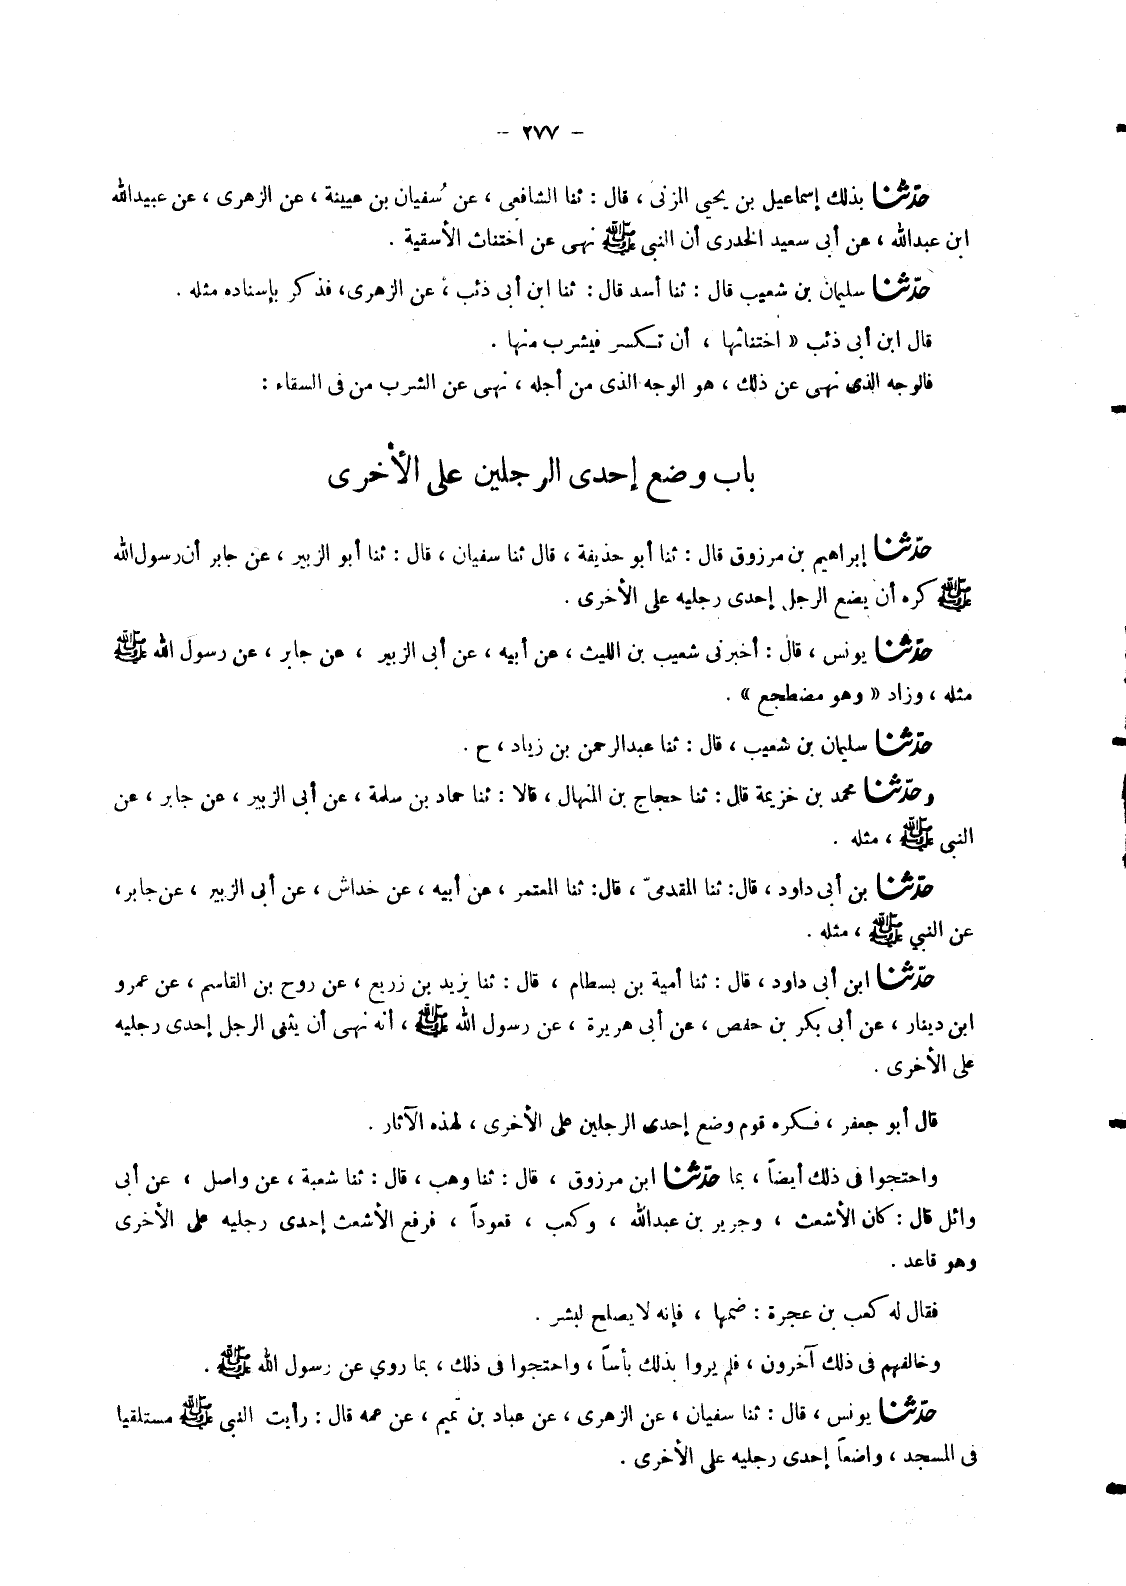 - ٢٧٧ -
حدّثنا بذلك إسماعيل بن يحيى المزنى ، قال : ثنا الشافعى ، عن سُفيان بن عيينة ، عن الزهرى ، عن عبيدالله
ابن عبدالله ، عن أبى سعيد الخدرى أن النبى ﷺ نهى عن اختناث الأسقية .
حدّثنا سليمان بن شعيب قال : ثنا أسد قال : ثنا ابن أبى ذئب ، عن الزهرى، فذكر بإسناده مثله .
قال ابن أبى ذئب « اختناثها ، أن تكسر فيشرب منها .
فالوجه الذى نهى عن ذلك ، هو الوجه الذى من أجله ، نهى عن الشرب من فى السقاء :
باب وضع إحدى الرجلين على الأخرى
حدّثنا إبراهيم بن مرزوق قال : ثنا أبو حذيفة ، قال ثنا سفيان ، قال : ثنا أبو الزبير ، عن جابر أن رسول الله
ﷺ كره أن يضع الرجل إحدى رجليه على الأخرى .
حدّثنا يونس ، قال : أخبرنى شعيب بن الليث ، عن أبيه ، عن أبى الزبير ، عن جابر ، عن رسول الله ﷺ
مثله ، وزاد « وهو مضطجع » .
حدّثنا سليمان بن شعيب ، قال : ثنا عبدالرحمن بن زياد ، ح .
وحدّثنا محمد بن خزيمة قال : ثنا حجاج بن المنهال ، قالا : ثنا حماد بن سلمة ، عن أبى الزبير ، عن جابر ، عن
النبى ﷺ ، مثله .
حدّثنا بن أبى داود ، قال: ثنا المقدمىّ ، قال: ثنا المعتمر ، عن أبيه ، عن خداش ، عن أبى الزبير ، عن جابر،
عن النبي ﷺ ، مثله .
حدّثنا ابن أبى داود ، قال : ثنا أمية بن بسطام ، قال : ثنا يزيد بن زريع ، عن روح بن القاسم ، عن عمرو
ابن دينار ، عن أبى بكر بن حفص ، عن أبى هريرة ، عن رسول الله ﷺ ، أنه نهى أن يثنى الرجل إحدى رجليه
على الأخرى .
قال أبو جعفر ، فكره قوم وضع إحدى الرجلين على الأخرى ، لهذه الآثار .
واحتجوا فى ذلك أيضاً ، بما حدّثنا ابن مرزوق ، قال : ثنا وهب ، قال : ثنا شعبة ، عن واصل ، عن أبى
وائل قال : كان الأشعث ، وجرير بن عبدالله ، وكعب ، قعوداً ، فرفع الأشعث إحدى رجليه على الأخرى
وهو قاعد .
فقال له كعب بن عجرة : ضمها ، فإنه لا يصلح لبشر .
وخالفهم فى ذلك آخرون ، فلم يروا بذلك بأساً ، واحتجوا فى ذلك ، بما روي عن رسول الله ﷺ .
حدّثنا يونس ، قال : ثنا سفيان ، عن الزهرى ، عن عباد بن تميم ، عن عمه قال : رأيت النبى ﷺ مستلقيا
فى المسجد ، واضعاً إحدى رجليه على الأخرى .